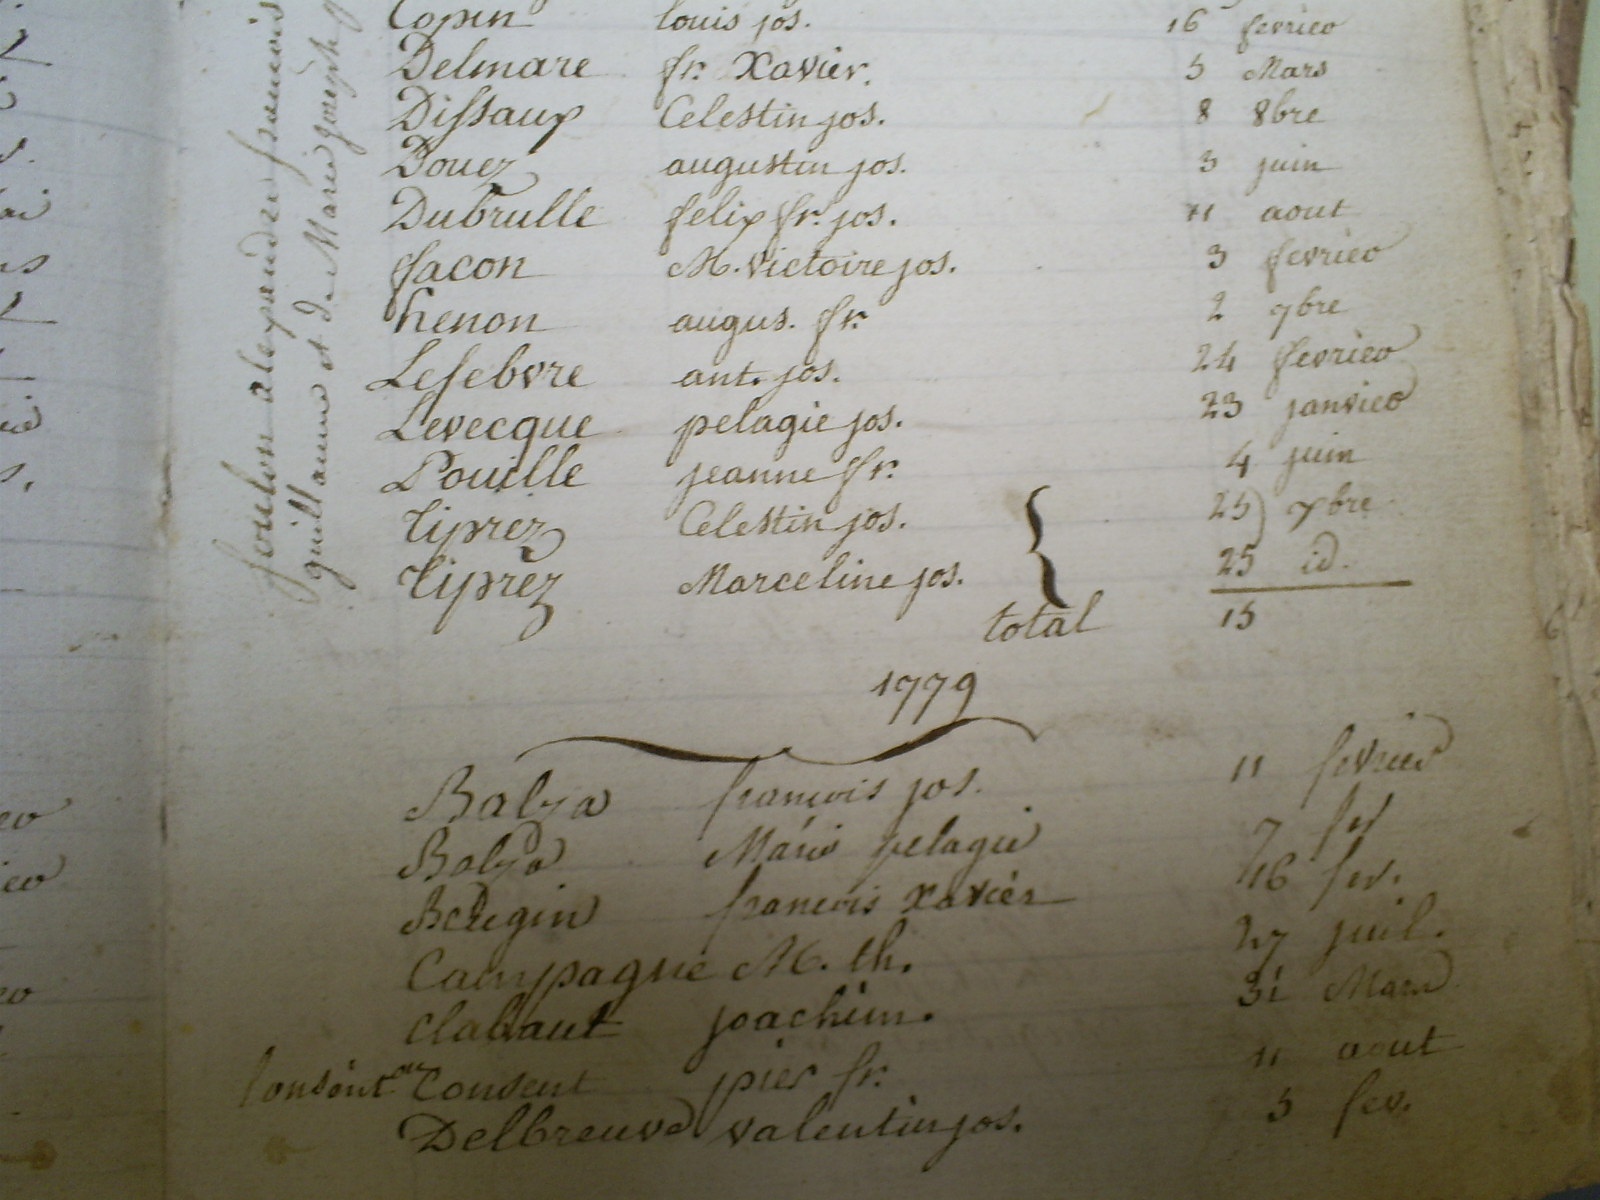 Copin louis jos. 16 fevrieo
Delmare fr. Xavier. 5 Mars
Dissaux Celestin jos. 8 8bre
Douez augustin jos. 3 juin
Dubrulle felix fr. jos. 11 aout
facon M. victoire jos. 3 fevrieo
henon augus. fr. 2 9bre
Lefebvre ant. jos. 24 fevrieo
Levecque pelagie jos. 23 janvieo
Pouille jeanne fr. 4 juin
Tiprez Celestin jos. 25 7bre
Tiprez Marceline jos. 25 id.
total 15
foulon alexandre francois
guillaume et de Marie joseph
1779
Balza francois jos. 11 fevrier
Balza Marie pelagie 7 fev
francois Xavier 16 fev.
Campagne M. th. 27 juil.
Clabaut joachim. 31 Mars
Consent pier fr. 11 aout
Delbreuve valentin jos. 5 fev.